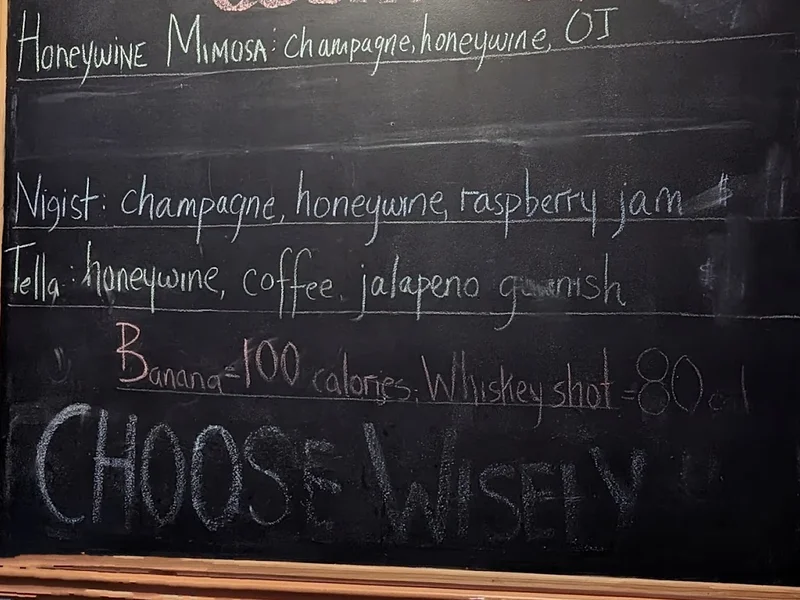 HONEYWINE MIMOSA: champagne, honeywine, OJ
Nigist: champagne, honeywine, raspberry jam $
Tella: honeywine, coffee, jalapeno garnish $
Banana=100 calories. Whiskey shot =80
CHOOSE WISELY